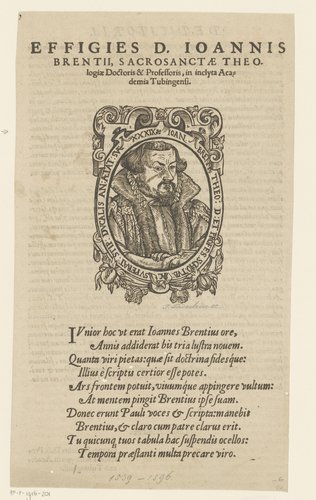 EFFIGIES D. IOANNIS
BRENTII, SACROSANCTÆ THEO-
logiæ Doctoris & Professoris, in inclyta Aca-
demia Tubingensi.
IVnior hoc vt erat Ioannes Brentius ore,
Annis addiderat bis tria lustra nouem.
Quanta viri pietas: quæ sit doctrina fidesque:
Illius è scriptis certior esse potes.
Ars frontem potuit, viuumque appingere vultum:
At mentem pingit Brentius ipse suam.
Donec erunt Pauli voces & scripta: manebit
Brentius, & claro cum patre clarus erit.
Tu quicunque tuos tabula hac suspendis ocellos:
Tempora præstanti multa precare viro.
1539 - 1596.